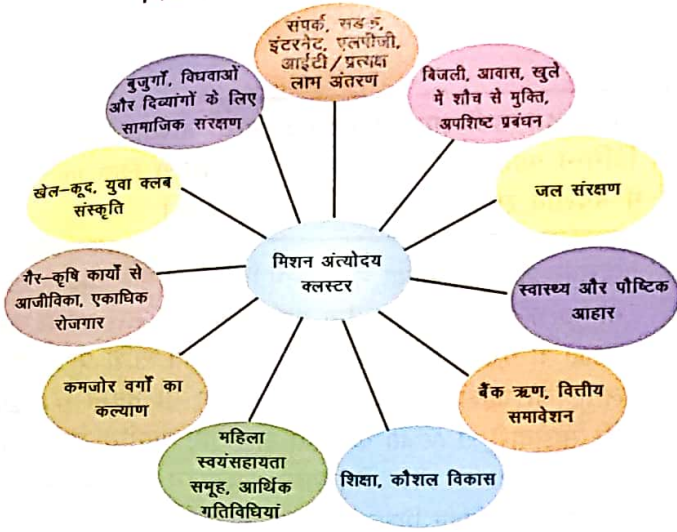 संपर्क, सड़क,
इंटरनेट, एलपीजी,
आईटी/प्रत्यक्ष
लाभ अंतरण
बिजली, आवास, खुले
में शौच से मुक्ति,
अपशिष्ट प्रबंधन
जल संरक्षण
स्वास्थ्य और पौष्टिक
आहार
बैंक ऋण, वित्तीय
समावेशन
शिक्षा, कौशल विकास
महिला
स्वयंसहायता
समूह, आर्थिक
गतिविधियां
कमजोर वर्गों का
कल्याण
गैर-कृषि कार्यों से
आजीविका, एकाधिक
रोजगार
खेल-कूद, युवा क्लब
संस्कृति
बुजुर्गों, विधवाओं
और दिव्यांगों के लिए
सामाजिक संरक्षण
मिशन अंत्योदय
क्लस्टर